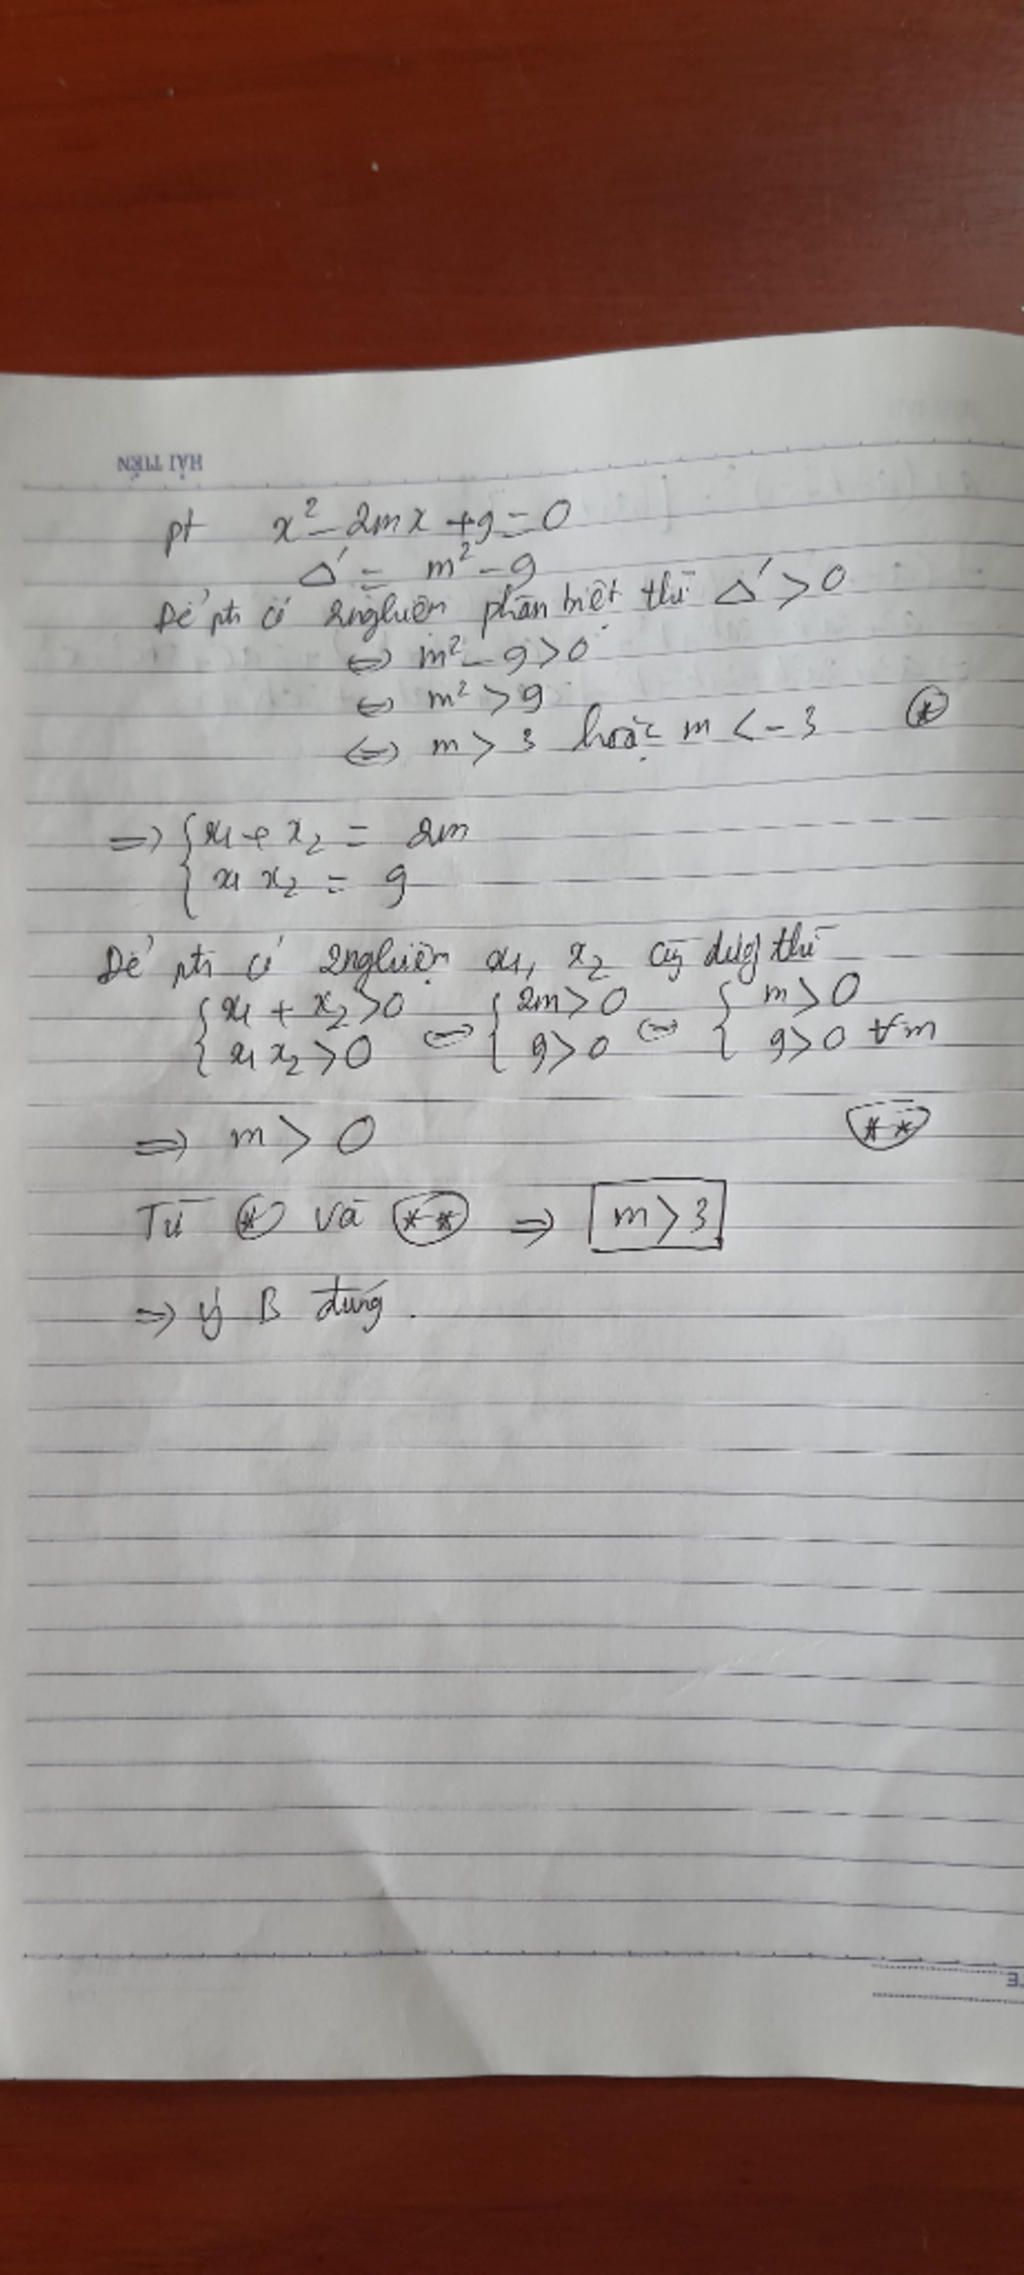 HẢI TIẾN
pt x² - 2mx + 9 = 0
Δ' = m² - 9
Để pt có 2 nghiệm phân biệt thì Δ' > 0
⇔ m² - 9 > 0
⇔ m² > 9
⇔ m > 3 hoặc m < -3 (*)
⇒ { x₁ + x₂ = 2m
{ x₁ x₂ = 9
Để pt có 2 nghiệm x₁, x₂ cùg dươg thì
{ x₁ + x₂ > 0 ⇔ { 2m > 0 ⇔ { m > 0
{ x₁ x₂ > 0 { 9 > 0 { 9 > 0 ∀m
⇒ m > 0 (**)
Từ (*) và (**) ⇒ m > 3
⇒ ý B đúng.